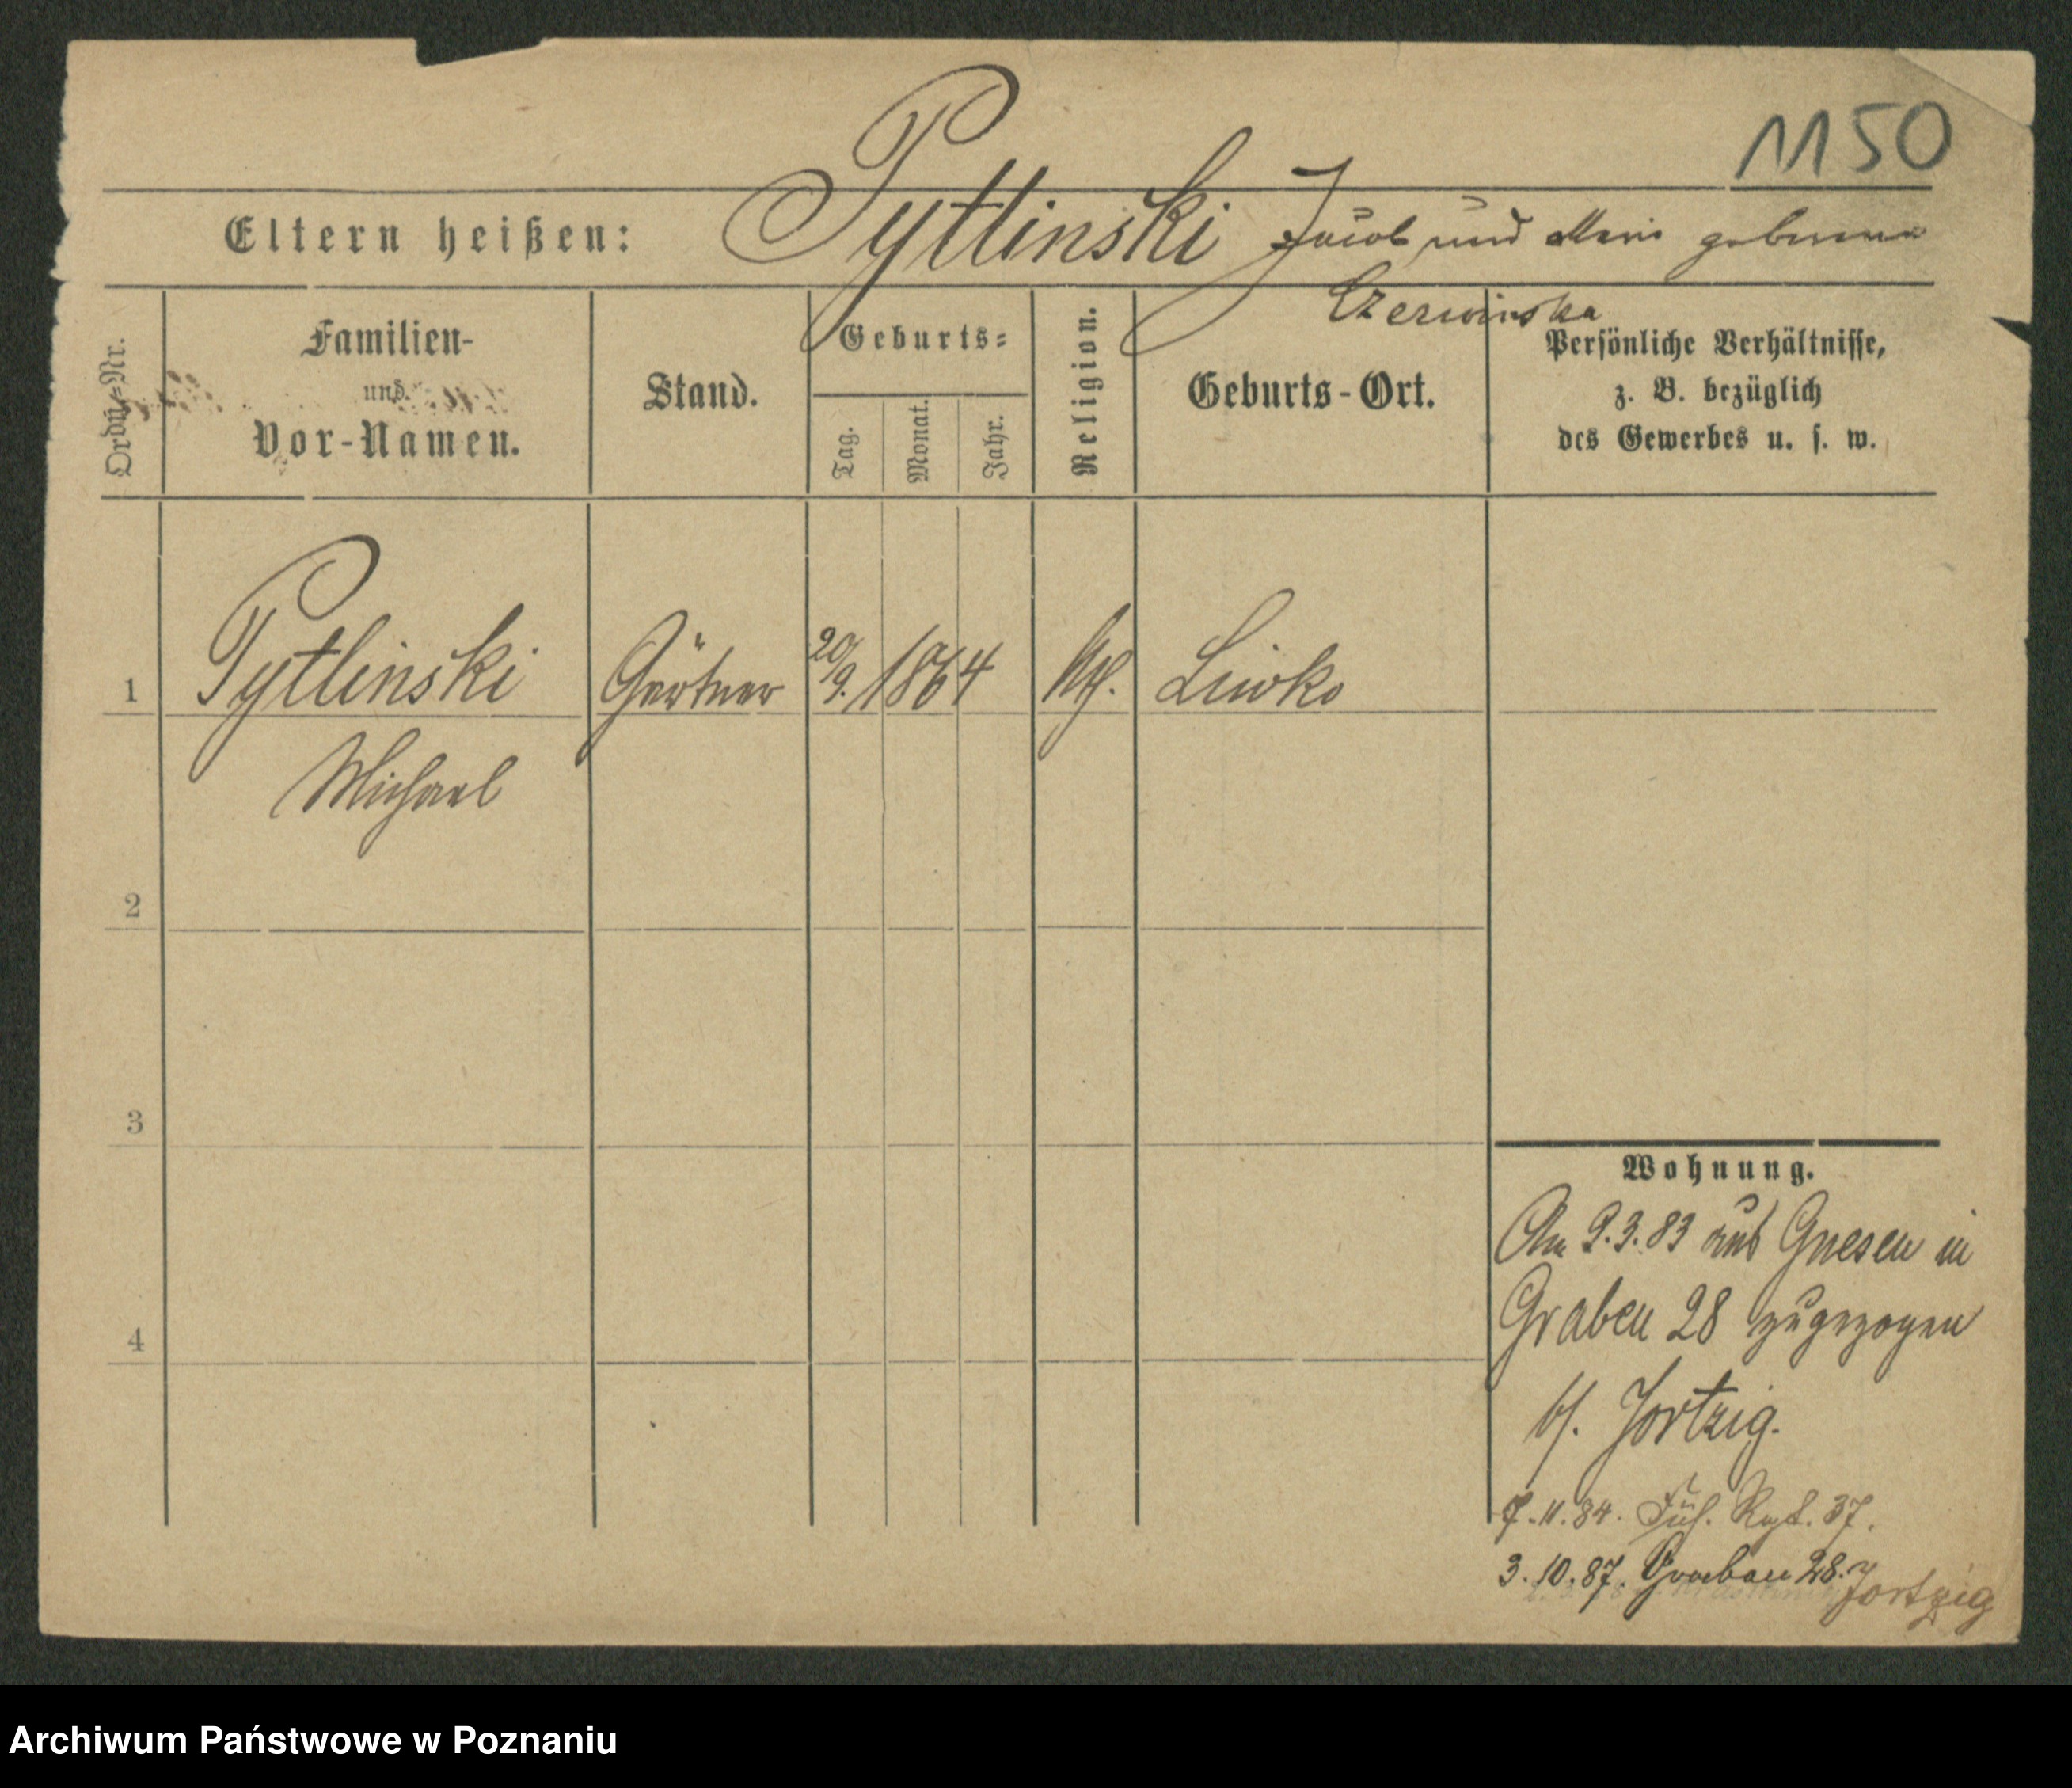 1150
Eltern heißen: Pytlinski Jacob und Marie geborene
Czerwinska
Ordn-Nr.
Familien-
und
Vor-Namen.
Stand.
Geburts-
Tag.
Monat.
Jahr.
Religion.
Geburts-Ort.
Persönliche Verhältnisse,
z. B. bezüglich
des Gewerbes u. s. w.
1 Pytlinski Gärtner 20/9. 1864 kth. Liwko
Michael
2
3
4
Wohnung.
Am 9.3.83 aus Gnesen in
Graben 28 zugezogen
b/. Jortzig.
7.11.84. Füs. Rgt. 37.
3.10.87. Graben 28. Jortzig
Archiwum Państwowe w Poznaniu